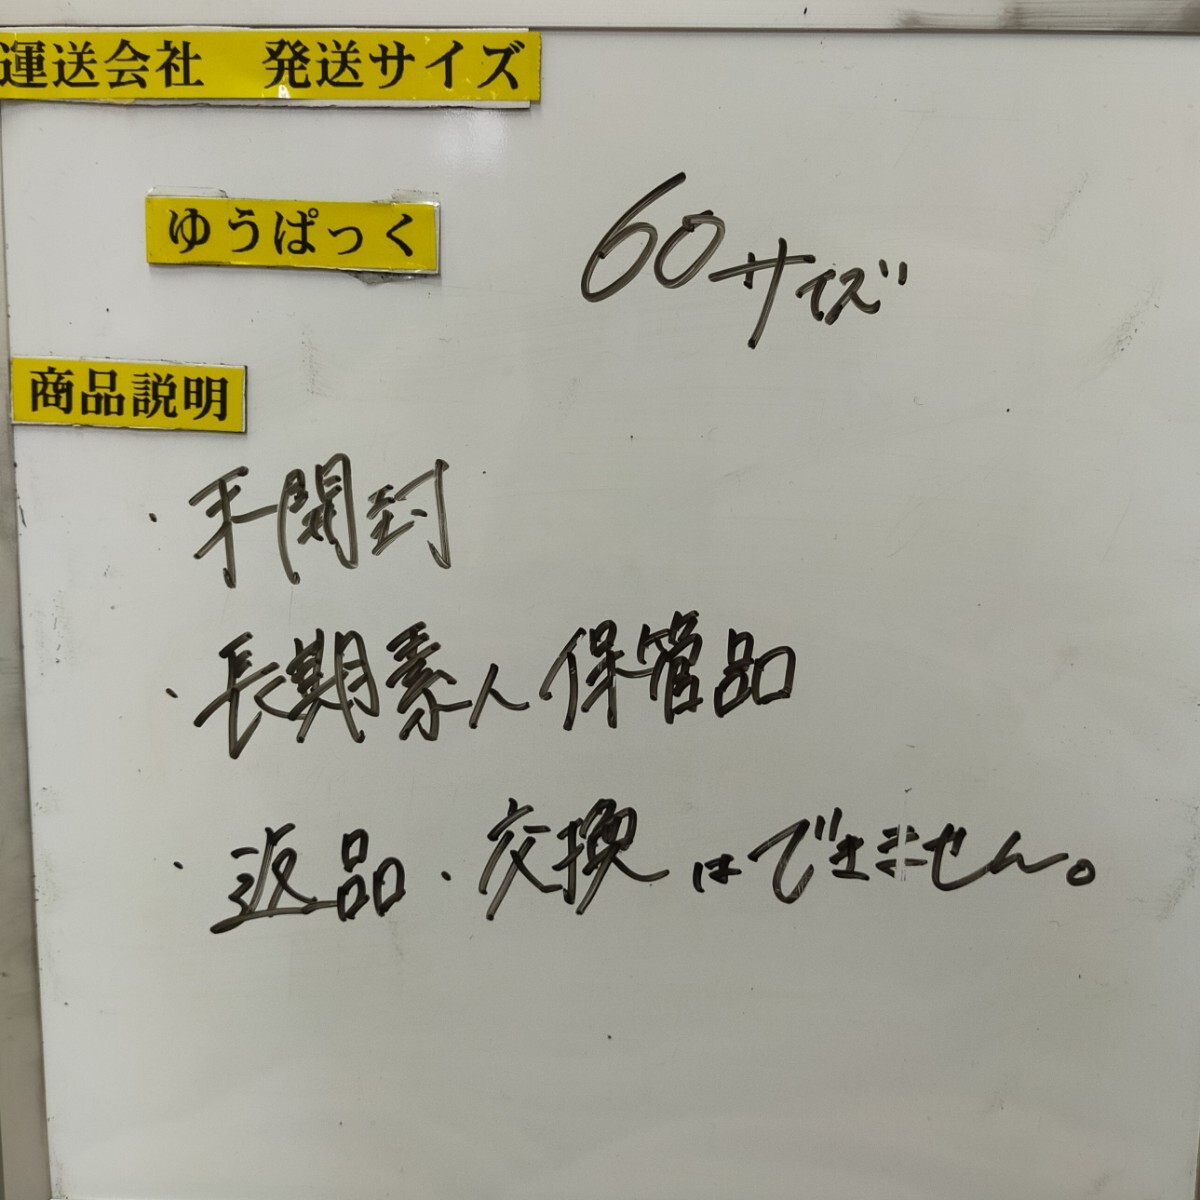 運送会社　発送サイズ
ゆうぱっく　60サイズ
商品説明
・未開封
・長期素人保管品
・返品・交換はできません。